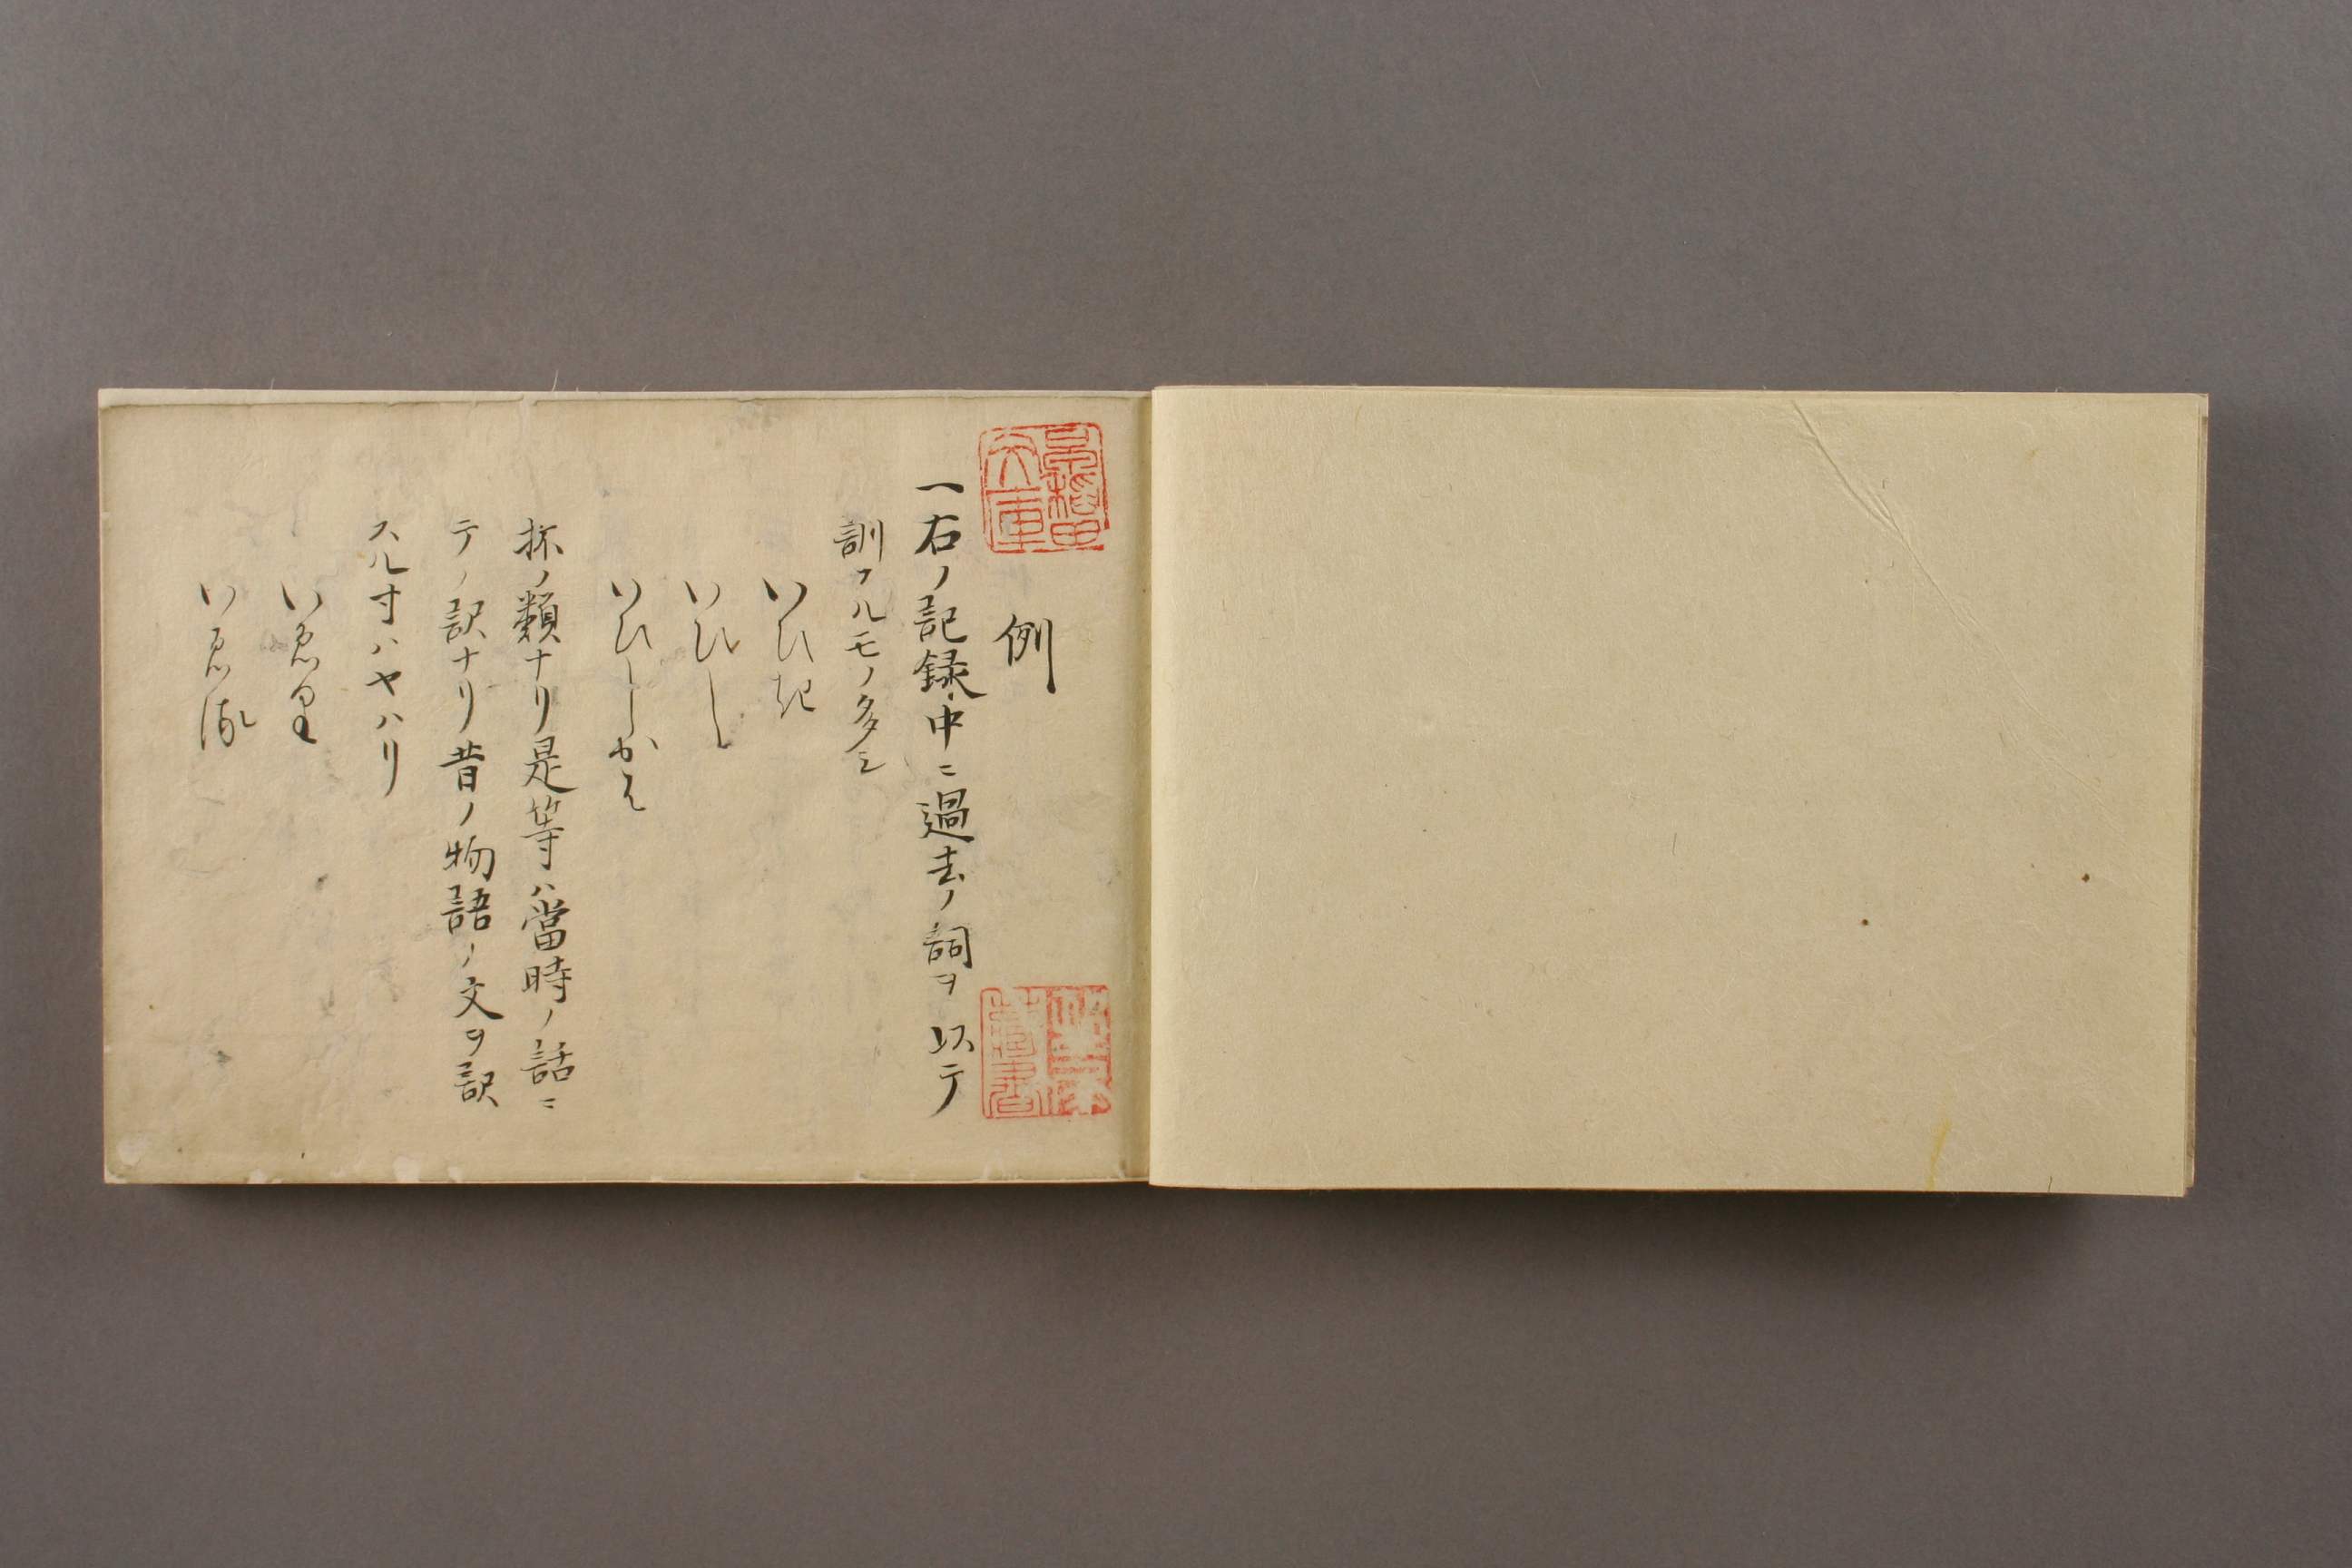 例
一右ノ記録中ニ過去ノ詞ヲ以テ
訓フルモノ多シ
いひき
いひし
いひしかは
抔ノ類ナリ是等ハ當時ノ話ニ
テノ訳ナリ昔ノ物語ノ文ヲ訳
スル寸ハヤハリ
いゑり
いゑる